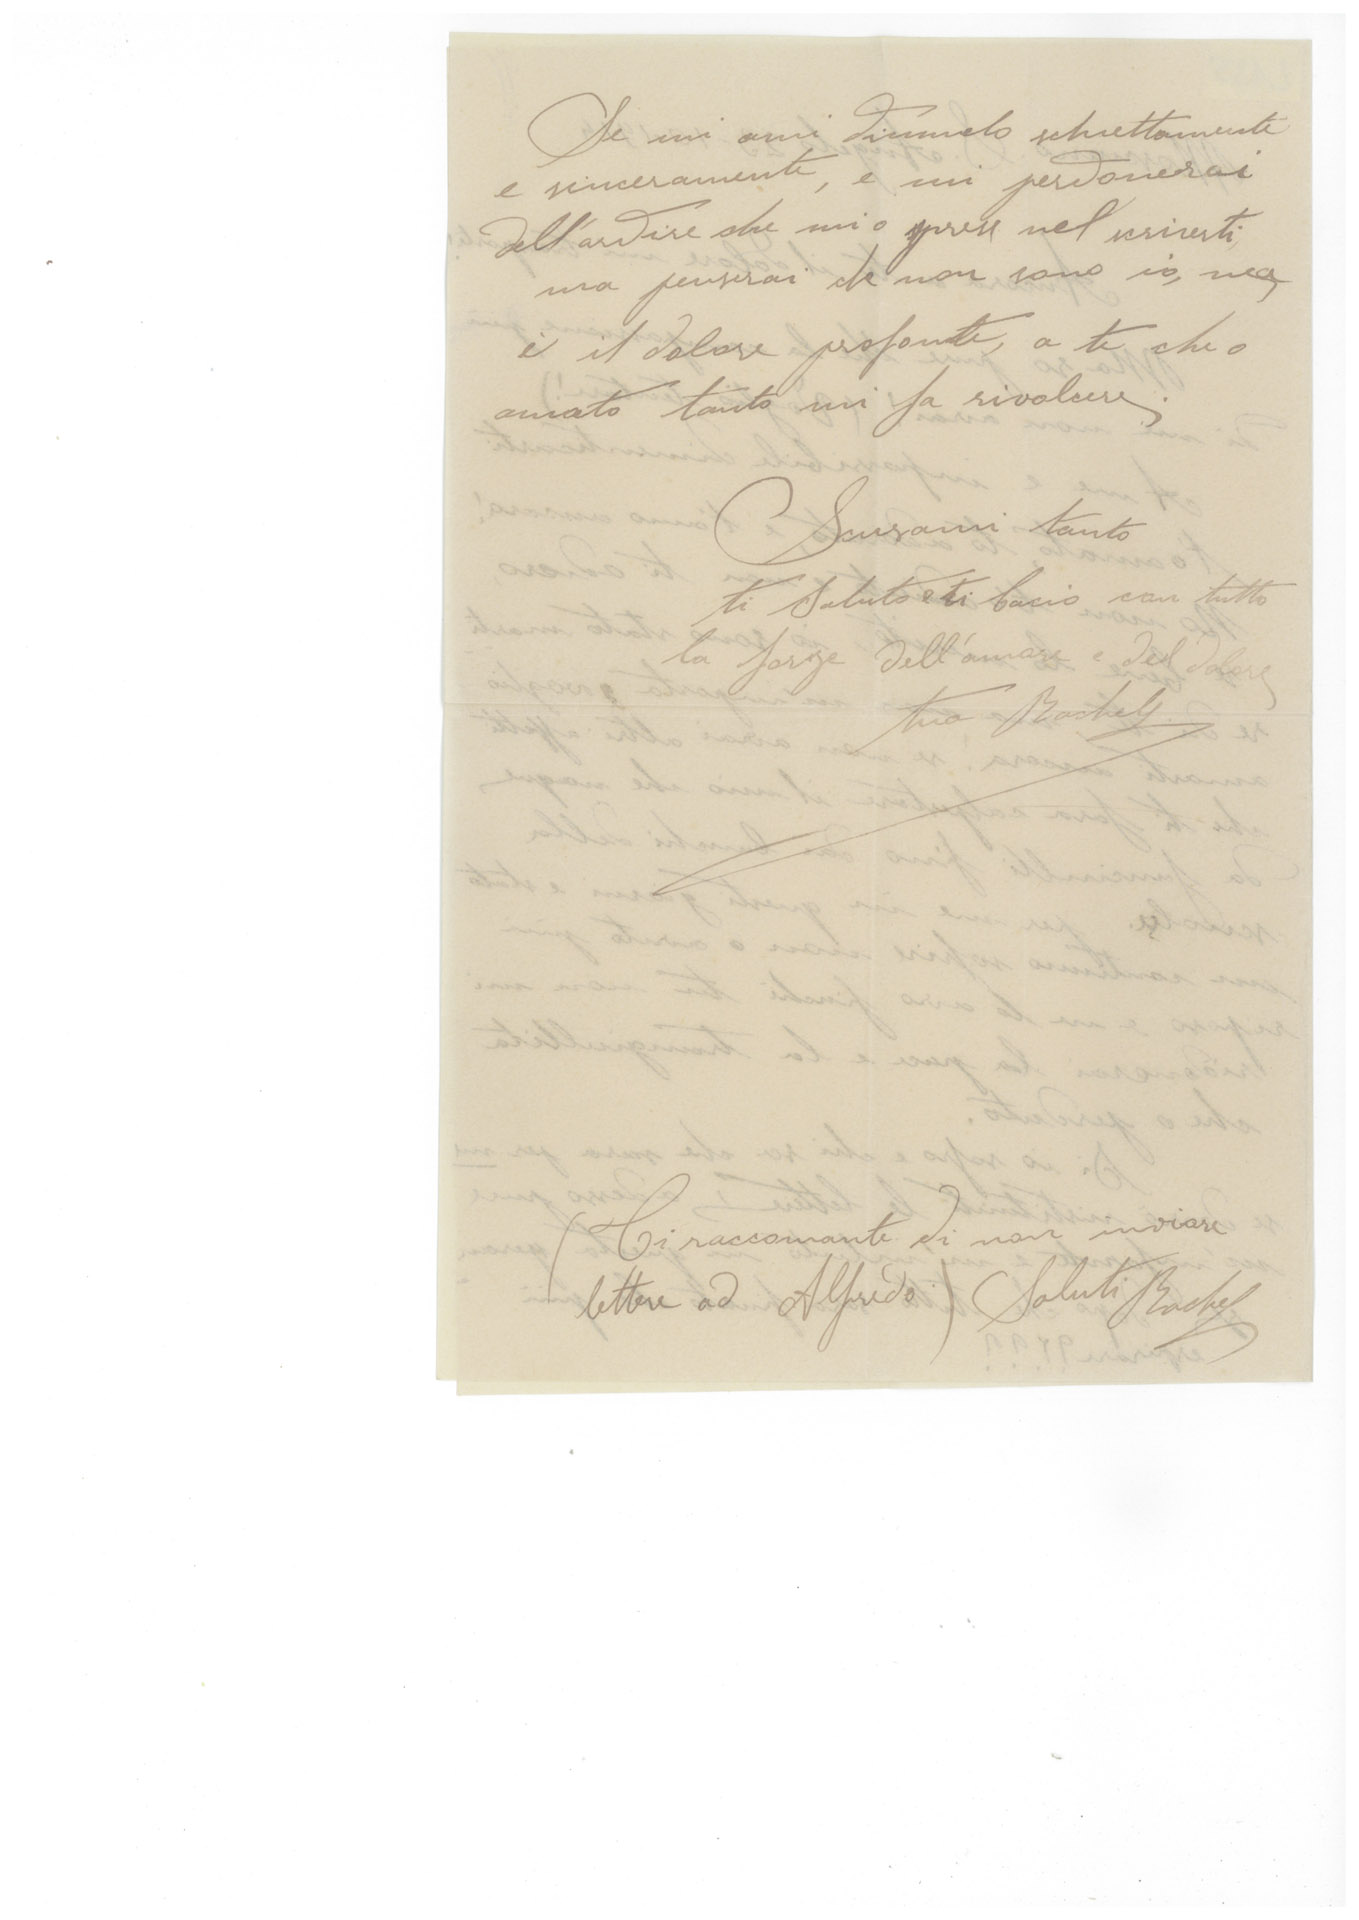 Se mi ami dimmelo schiettamente
e sinceramente, e mi perdonerai
dell'ardire che mi o prese nel scriverti,
ma penserai che non sono io, ma,
è il dolore profonte, a te che o
amato tanto mi fa rivolcere.
Scusami tanto
ti saluto e ti bacio con tutto
la forze dell'amore e del dolore
tua Rachel
(Ti raccomante di non inviare
lettere ad Alfredo) Saluti Rachel